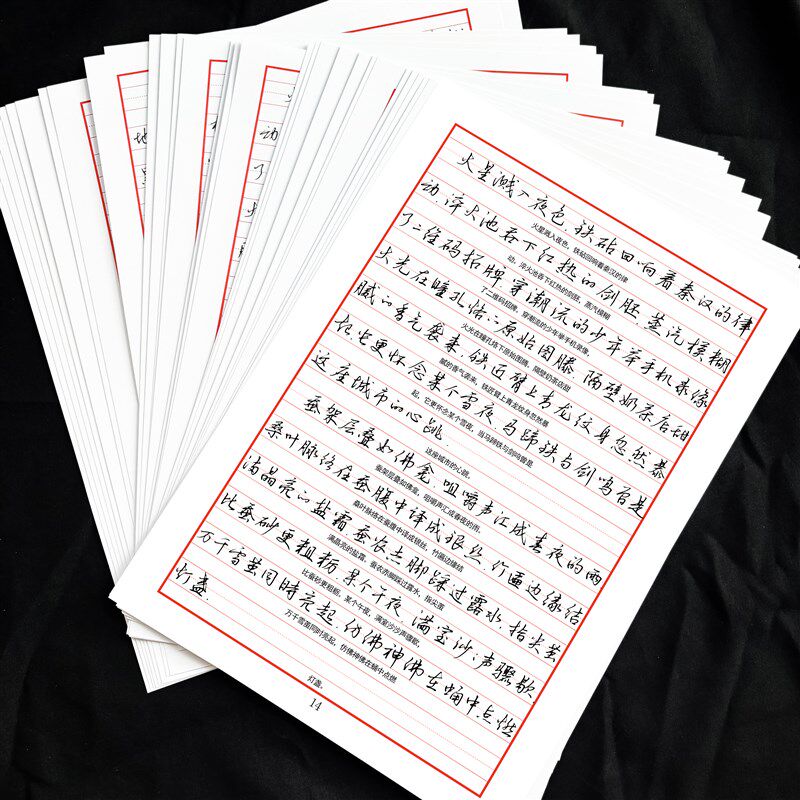 火星溅入夜色,铁砧回响着秦汉的律
火星溅入夜色,铁砧回响着秦汉的律
动,淬火池吞下红热的剑胚,蒸汽模糊
动,淬火池吞下红热的剑胚,蒸汽模糊
了二维码招牌,穿潮流的少年举手机录像
了二维码招牌,穿潮流的少年举手机录像,
火光在瞳孔烙下原始图腾,隔壁奶茶店甜
火光在瞳孔烙下原始图腾,隔壁奶茶店甜
腻的香气袭来,铁匠臂上青龙纹身忽然暴
腻的香气袭来,铁匠臂上青龙纹身忽然暴
起,它更怀念某个雪夜,马蹄铁与剑鸣曾是
起,它更怀念某个雪夜,当马蹄铁与剑鸣曾是
这座城市的心跳.
这座城市的心跳。
蚕架层叠如佛龛,咀嚼声汇成春夜的雨
蚕架层叠如佛龛,咀嚼声汇成春夜的雨,
桑叶脉络在蚕腹中译成银丝,竹匾边缘结
桑叶脉络在蚕腹中译成银丝,竹匾边缘结
满晶亮的盐霜,蚕农赤脚踩过露水,指尖茧
满晶亮的盐霜,蚕农赤脚踩过露水,指尖茧
比蚕砂更粗粝,某个午夜,满室沙沙声骤歇,
比蚕砂更粗粝,某个午夜,满室沙沙声骤歇,
万千雪茧同时亮起,仿佛神佛在蛹中点燃
万千雪茧同时亮起,仿佛神佛在蛹中点燃
灯盏.
灯盏。
14
地
动
了